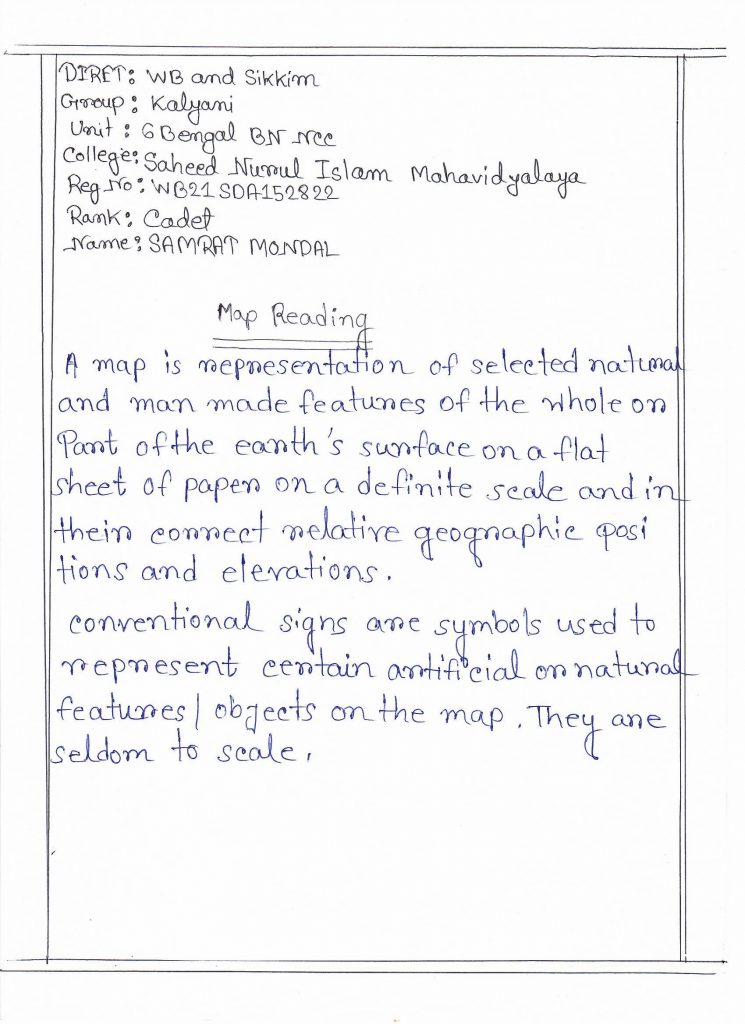 DIRET: WB and Sikkim
Group: Kalyani
Unit: 6 Bengal BN NCC
College: Saheed Nurul Islam Mahavidyalaya
Reg No: WB21SDA152822
Rank: Cadet
Name: SAMRAT MONDAL
Map Reading
A map is representation of selected natural
and man made features of the whole or
Part of the earth's surface on a flat
sheet of paper on a definite scale and in
their correct relative geographic posi
tions and elevations.
conventional signs are symbols used to
represent certain artificial or natural
features/ objects on the map. They are
seldom to scale.